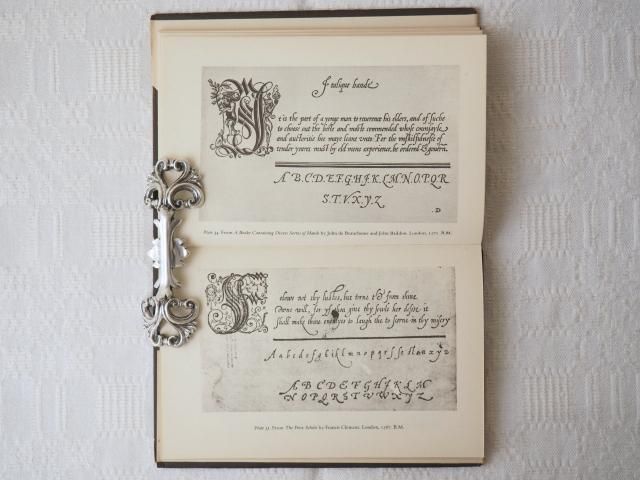 Italique hande
It is the part of a yonge man to reuerence his elders, and of suche
to choose out the beste and moste commended whose counsayle
and auctoritie hee maye leane vnto: For the vnskilfulnesse of
tender yeares must by old mens experience, be ordered & gouern.
A.B.C.D.E.F.G.H.J.K.L.M.N.O.P.Q.R
S.T.V.X.Y.Z.
.D
Plate 34. From A Booke Containing Divers Sortes of Hands by John de Beauchesne and John Baildon. London, 1570. B.M.
folow not thy lustes, but turne thee from thine
owne will, for yf thou give thy soule her desire it
shall make thine enemyes to laugh thee to scorne in thy misery
A a b c d e f g h i k l m n o p q r s t u x y z
A B C D E F G H J K L M
N O P Q R S T V W X Y Z
Plate 35. From The Petie Schole by Francis Clement. London, 1587. B.M.